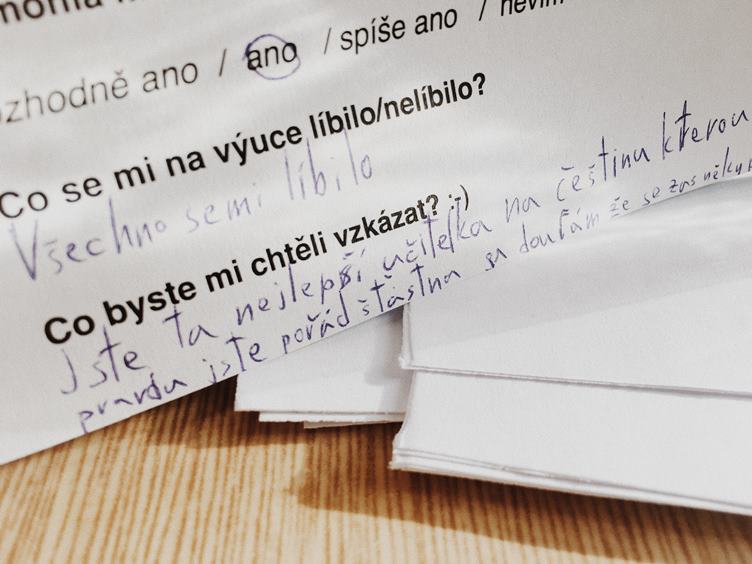 zhodně ano / ano / spíše ano / nevím
Co se mi na výuce líbilo/nelíbilo?
Všechno semi líbilo
Co byste mi chtěli vzkázat? :-)
jste ta nejlepší učitelka na češtinu kterou
pravdu jste pořád šťastna su doufám že se zas